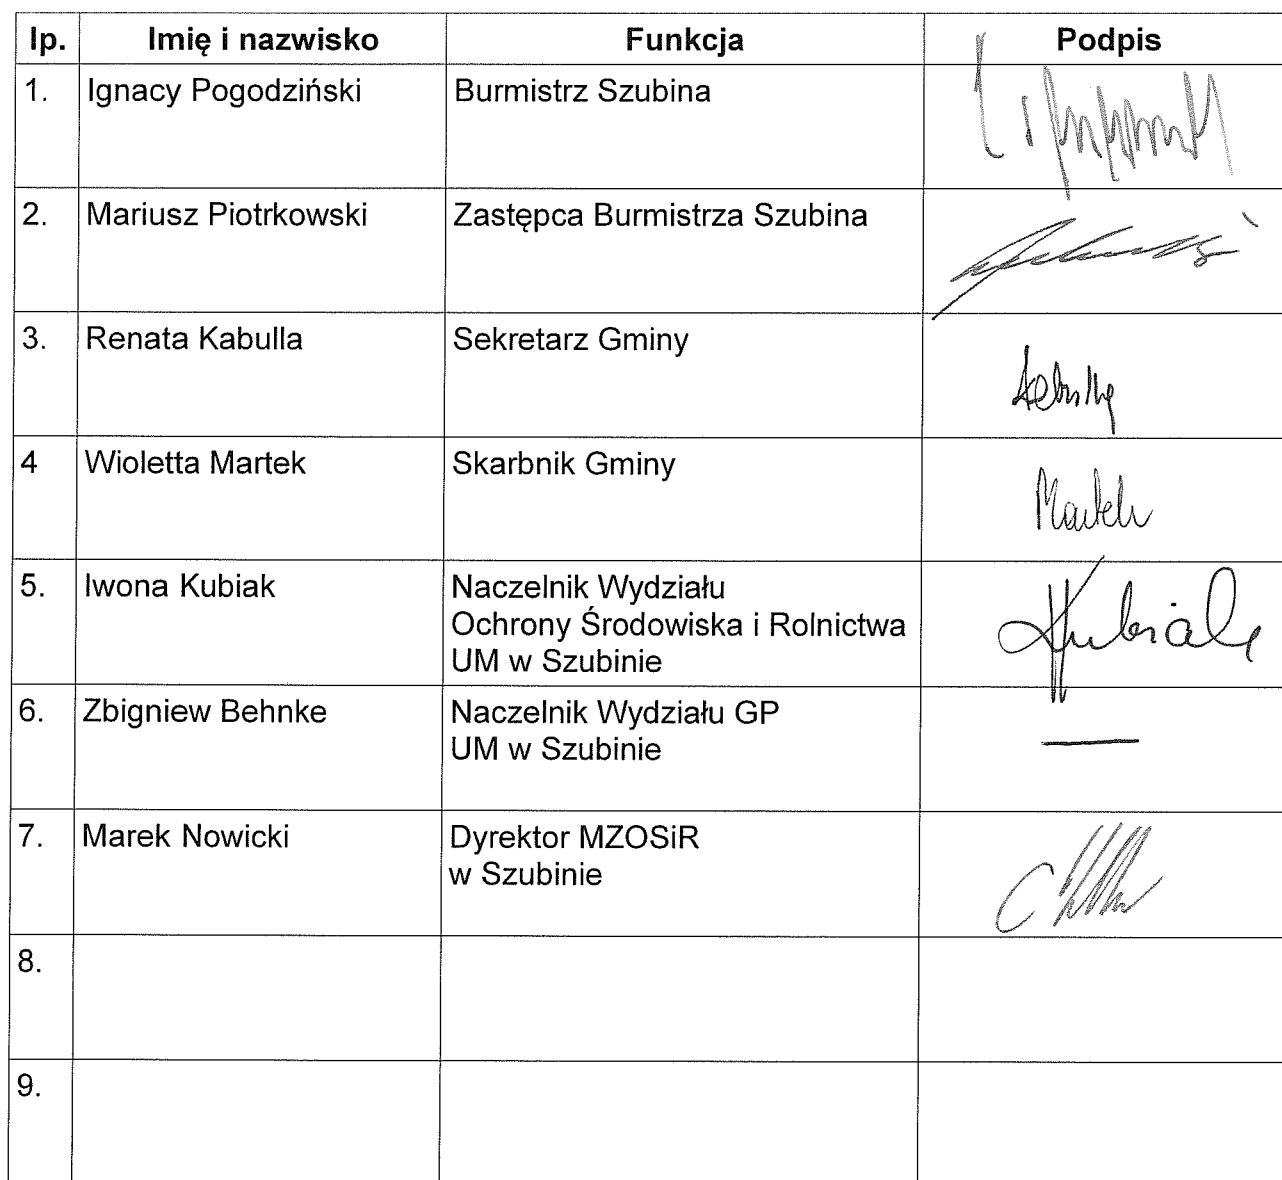 lp. Imię i nazwisko Funkcja Podpis
1. Ignacy Pogodziński Burmistrz Szubina
2. Mariusz Piotrkowski Zastępca Burmistrza Szubina
3. Renata Kabulla Sekretarz Gminy
4 Wioletta Martek Skarbnik Gminy
Martek
5. Iwona Kubiak Naczelnik Wydziału
Ochrony Środowiska i Rolnictwa
UM w Szubinie
Kubiak
6. Zbigniew Behnke Naczelnik Wydziału GP
UM w Szubinie —
7. Marek Nowicki Dyrektor MZOSiR
w Szubinie
8.
9.